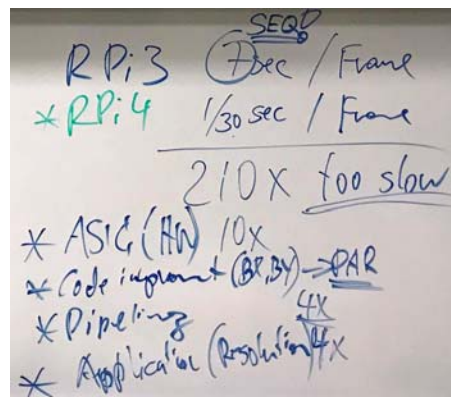 SEQ
RPi3 7sec / Frame
* RPi4 1/30 sec / Frame
210x too slow
* ASIC (HW) 10x
* Code improvmt (BP, BY) → PAR
4x
* Pipeling
* Application (Resolution) 4x